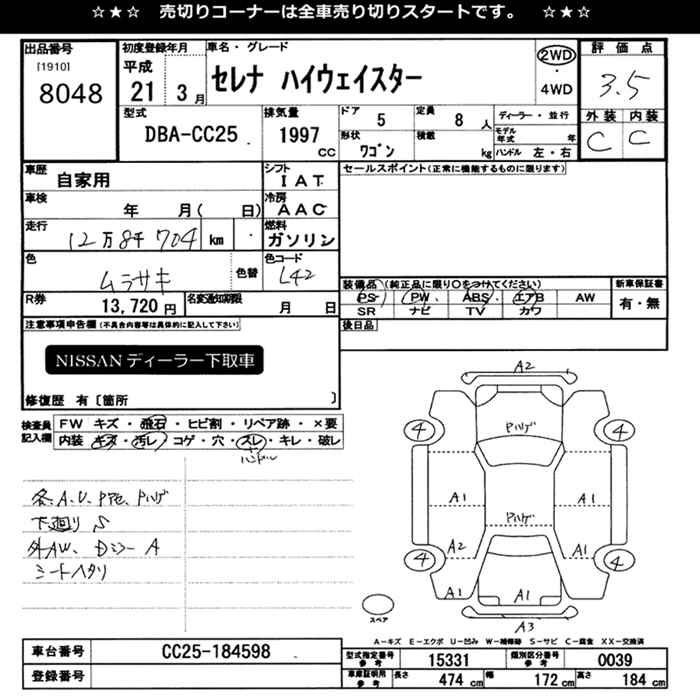 ☆★☆ 売切りコーナーは全車売り切りスタートです。 ☆★☆
出品番号
[1910]
8048
初度登録年月
平成
21 3月
車名・グレード
セレナ ハイウェイスター
2WD
・
4WD
評価点
3.5
外装 内装
C C
型式
DBA-CC25
排気量
1997
cc
ドア
5
定員
8 人
形状
ワゴン
積載
kg
ディーラー・並行
モデル年式 年
ハンドル 左・右
車歴
自家用
シフト
IAT
車検
年 月( 日)
冷房
AAC
走行
12万8千704 km
燃料
ガソリン
色
ムラサキ
色替
色コード
L42
R券
13,720円
名変通知期限
月 日
セールスポイント(正常に機能するものに限ります)
装備品 (純正品に限り○をつけてください)
PS PW ABS エアB AW
SR ナビ TV カワ
新車保証書
有・無
後日品
注意事項申告欄(不具合内容等は具体的に記入して下さい)
NISSANディーラー下取車
修復歴 有〔箇所 〕
検査員記入欄
FW キズ・飛石・ヒビ割・リペア跡・×要
内装 キズ・汚レ・コゲ・穴・スレ・キレ・破レ
ハンドル
各、A、U、PPE、Pハゲ
下廻りS
外AW、Dミラー A
シートヘタリ
A2
Pハゲ
4 4
A1 A1
Pハゲ
A2 A1
4 4
A1 A1 A1
A3
スペア
A−キズ E−エクボ U−凹み W−補修跡 S−サビ C−腐食 XX−交換済
車台番号
CC25-184598
登録番号
型式指定番号
参考
15331
類別区分番号
参考
0039
車庫証明用
参考
長さ 474 cm
幅 172 cm
高さ 184 cm